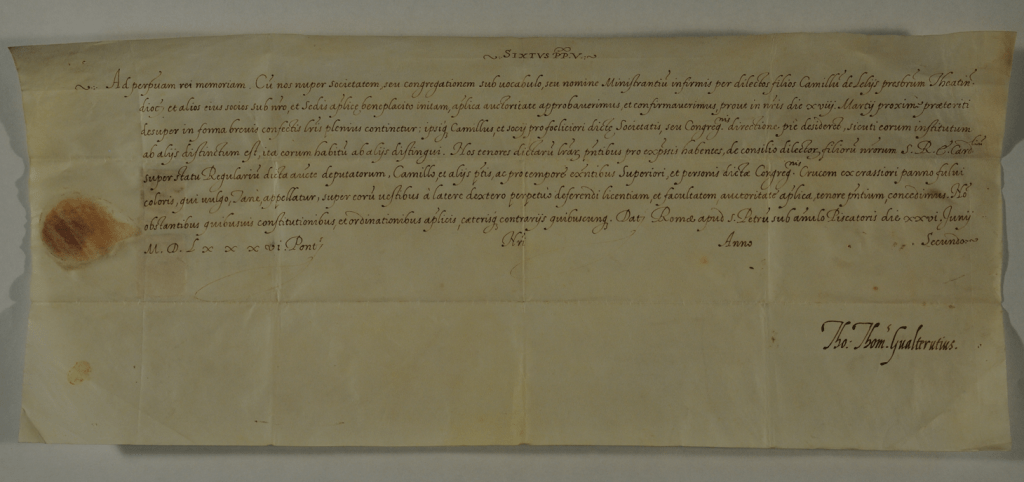 SIXTUS PP. V.
Ad perpuam rei memoriam. Cũ nos nuper societatem, seu congregationem sub vocabulo, seu nomine Ministrantiũ infirmis per dilectos filios Camillũ de Lelijs presbrum Theatin̄
dioc: et alios eius socios sub nrõ, et Sedis aplicę beneplacito initam, aplica auctoritate approbaverimus et confirmaverimus, prout in nr̃is die xviij. Martij proximè præteriti
desuper in forma brevis confectis lr̃is plenius continetur: ipsiq; Camillus et socij pro feliciori dictę Societatis, seu Congreg.nis directione piè desiderẽt, sicuti eorum institutum
ab alijs distinctum est, ita eorum habitũ ab alijs distingui. Nos tenores dictarũ lr̃ar̃ pñtibus pro expressis habentes, de consilio dilector̃ filiorũ nrorum S. R. E. Card.lium
super statu Regulariũ dicta aucte deputatorum, Camillo et alijs ptis, ac pro tempore exñtibus Superiori, et personis dictæ Congreg.nis Crucem ex crassiori panno fulvi
coloris, qui vulgo, Tanè, appellatur, super eorũ vestibus à latere dextero perpetuo deferendi licentiam, et facultatem auctoritate aplica, tenore pñtium concedimus. Nõ
obstantibus quibusvis constitutionibus, et ordinationibus aplicis, cæterisq; contrarijs quibuscunq;. Dat̃ Romæ apud S. Petrũ sub anulo Piscatoris die xxvi, Junij
M. D. L x x x vi. Pont.s Nri. Anno Secundo
Tho: Thom. Gualterutius.